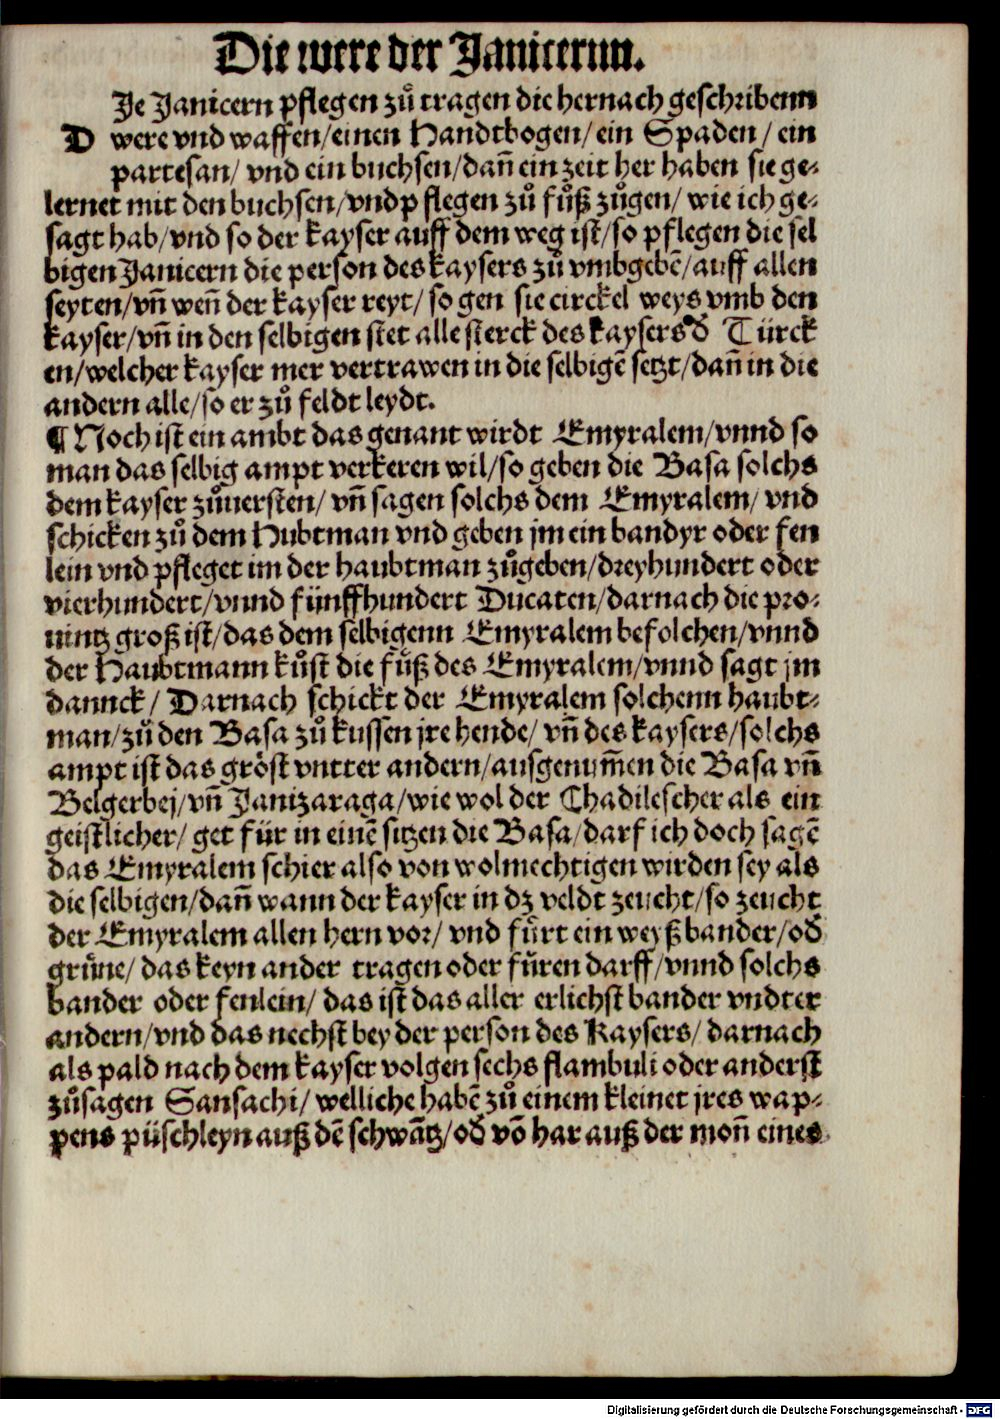 Die were der Janicerun.
Je Janicern pflegen zů tragen die hernach geschribenn
D were vnd waffen/einen Handtbogen/ein Spaden/ ein
partesan/ vnd ein buchsen/dañ ein zeit her haben sie ge⸗
lernet mit den buchsen/vnd pflegen zů fůß zůgen/ wie ich ge⸗
sagt hab/vnd so der kayser auff dem weg ist/so pflegen die sel
bigen Janicern die person des kaysers zů vmbgebē/auff allen
seyten/vñ weñ der kayser reyt/ so gen sie circkel weys vmb den
kayser/vñ in den selbigen stet alle sterck des kaysers đ Türck
en/welcher kayser mer vertrawen in die selbigē setzt/dañ in die
andern alle/so er zů feldt leydt.
¶ Noch ist ein ambt das genant wirdt Emyralem/vnnd so
man das selbig ampt verkeren wil/so geben die Basa solchs
dem kayser zůuersten/ vñ sagen solchs dem Emyralem/ vnd
schicken zů dem Hubtman vnd geben jm ein bandyr oder fen
lein vnd pfleget im der haubtman zůgeben/dreyhundert oder
vierhundert/vnnd fünffhundert Ducaten/darnach die pro⸗
uintz groß ist/das dem selbigenn Emyralem befolchen/vnnd
der Haubtmann kůst die fůß des Emyralem/vnnd sagt jm
dannck/ Darnach schickt der Emyralem solchenn haubt⸗
man/zů den Basa zů kussen jre hende/ vñ des kaysers/solchs
ampt ist das gröst vntter andern/ausgenum̄en die Basa vñ
Belgerbej/vñ Janitzaraga/wie wol der Chadilescher als ein
geistlicher/ get für in einē sitzen die Basa/darf ich doch sagē
das Emyralem schier also von wolmechtigen wirden sey als
die selbigen/dañ wann der kayser in dz veldt zeucht/so zeucht
der Emyralem allen hern vor/ vnd fůrt ein weyß bander/ođ
grůne/ das keyn ander tragen oder fůren darff/vnnd solchs
bander oder fenlein/ das ist das aller erlichst bander vndter
andern/vnd das nechst bey der person des Kaysers/ darnach
als pald nach dem kayser volgen sechs flambuli oder anderst
zůsagen Sansachi/ welliche habē zů einem kleinet jres wap⸗
pens püschleyn auß dē schwātz/ođ vō har auß der moñ eines
Digitalisierung gefördert durch die Deutsche Forschungsgemeinschaft - DFG